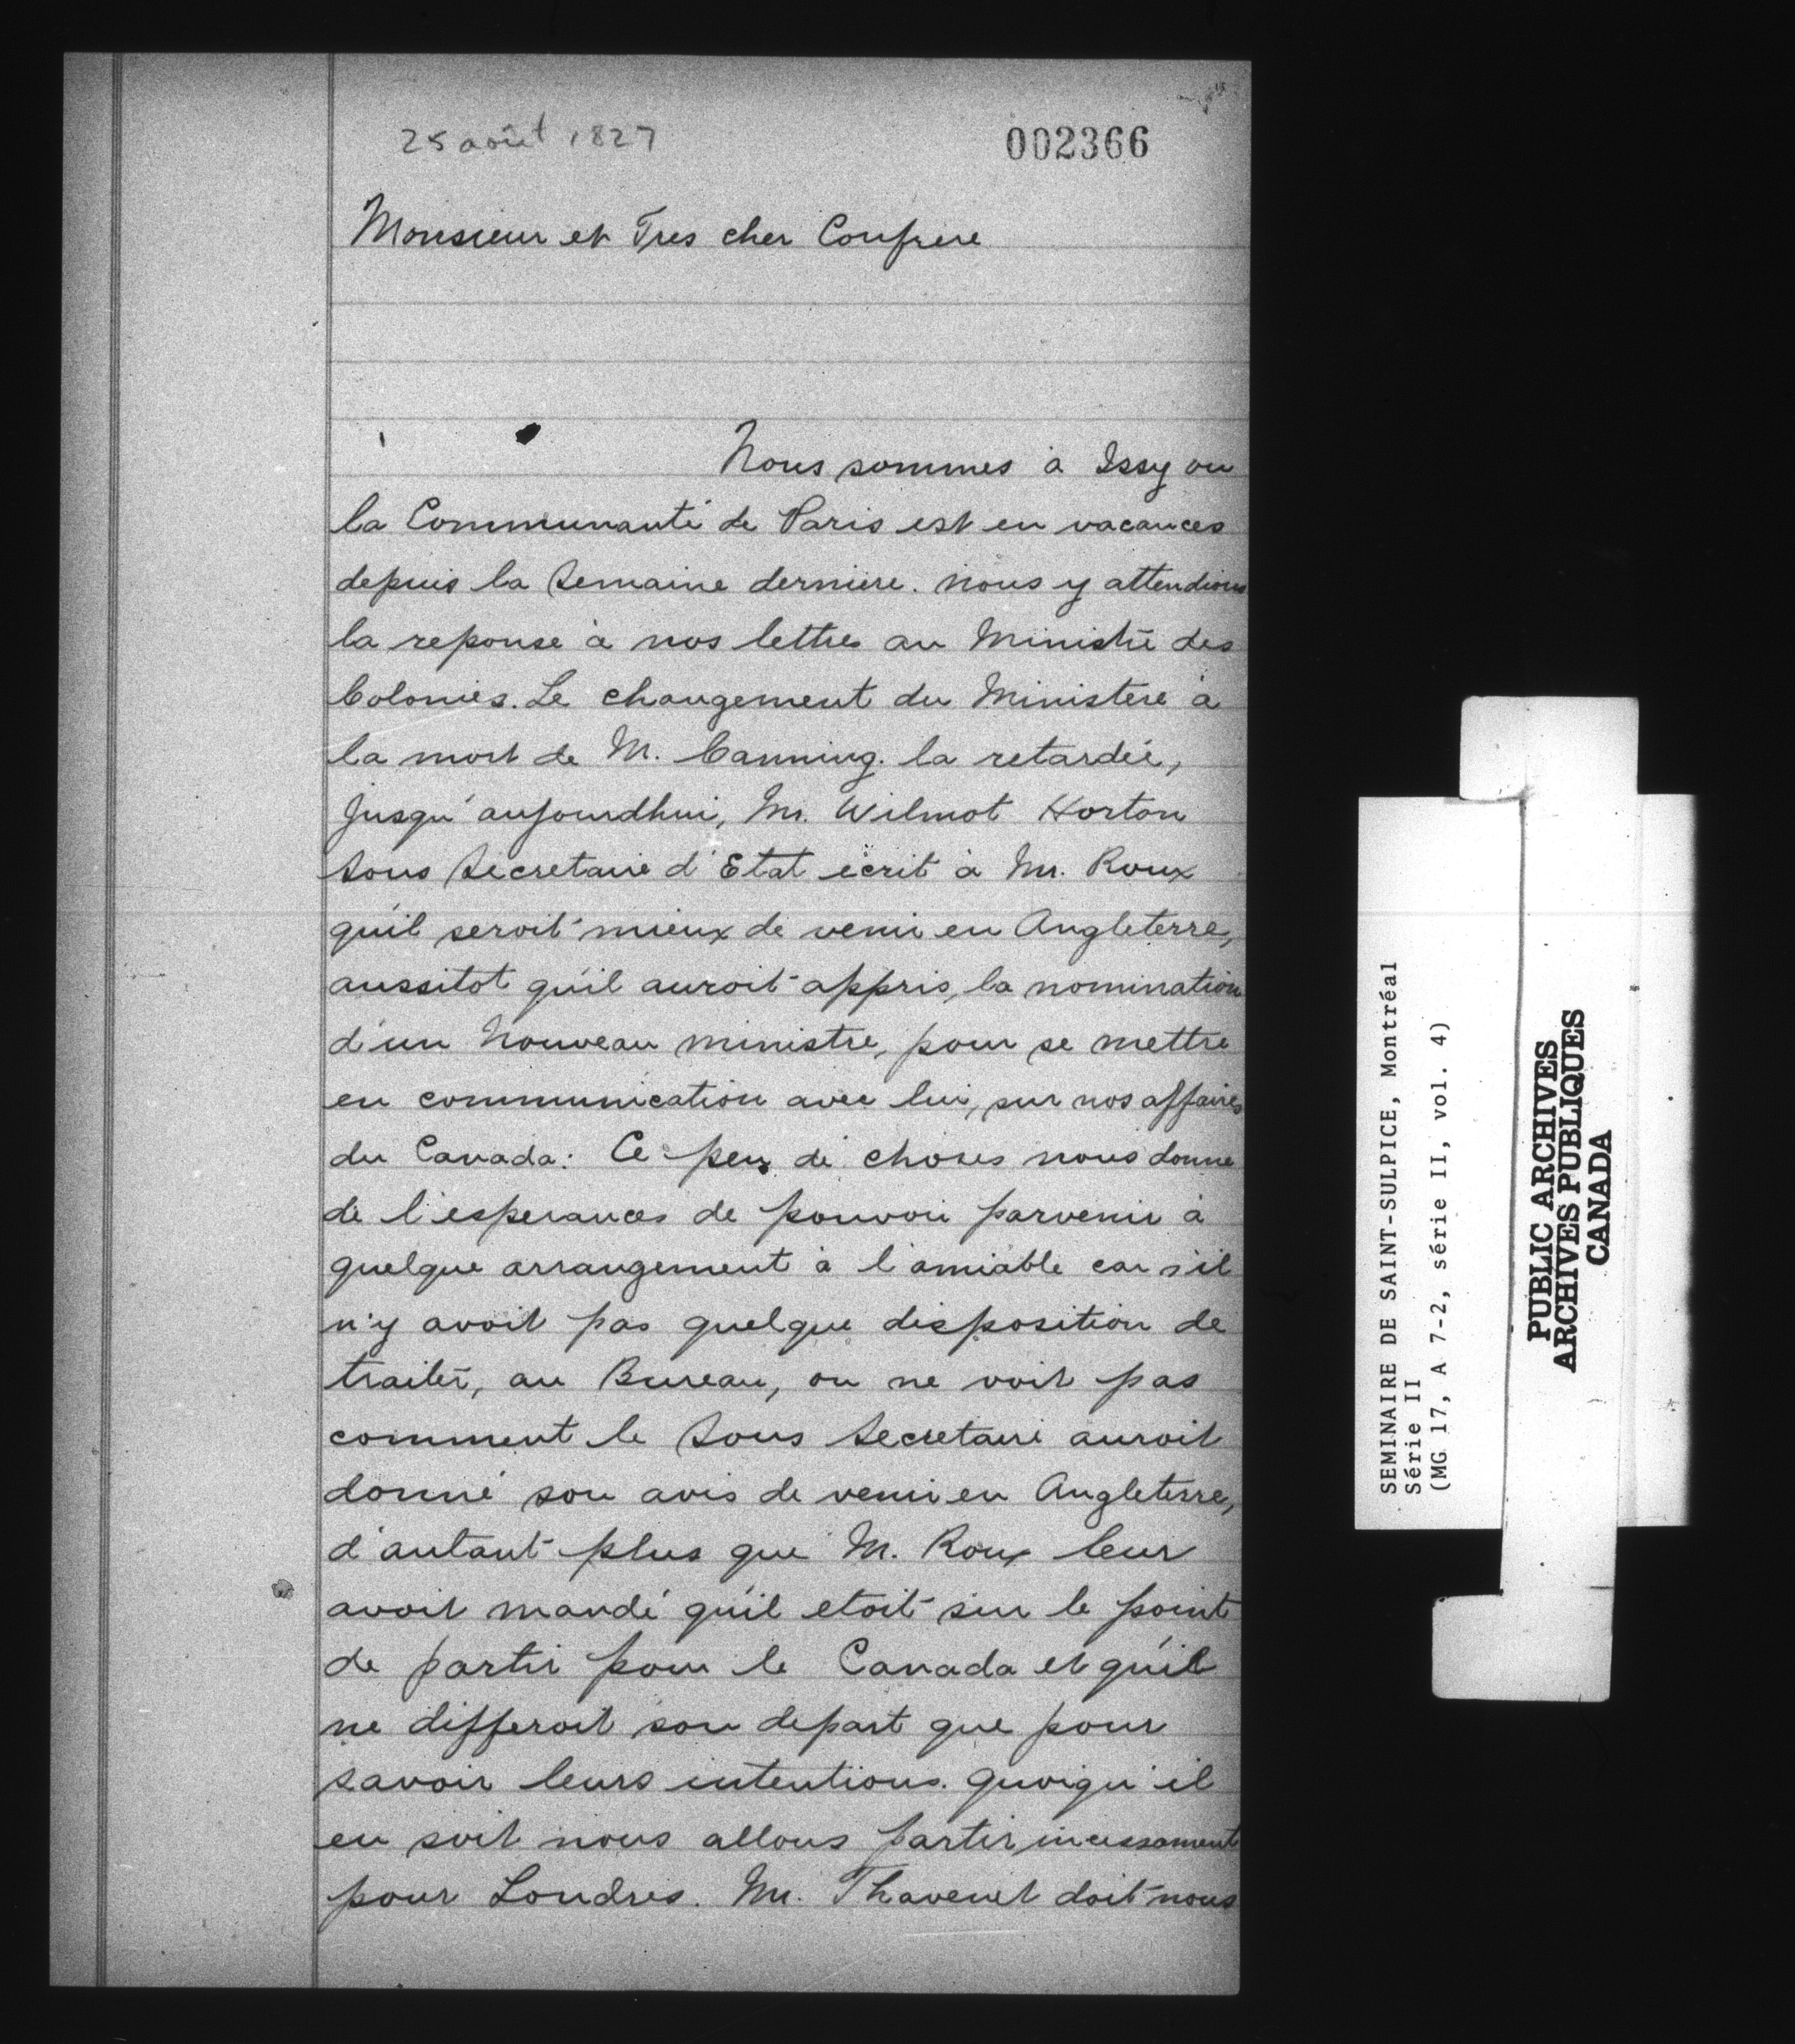 25 août 1827
002366
Monsieur et Tres cher Confrere
Nous sommes à Issy ou
la Communauté de Paris est en vacances
depuis la Semaine derniere. nous y attendions
la reponse à nos lettres au Ministre des
Colonies. Le changement du Ministere à
la mort de M. Canning. la retardée,
jusqu'aujourdhui, Mr. Wilmot Horton
Sous Secretaire d'Etat écrit à Mr. Roux
qu'il seroit mieux de venir en Angleterre,
aussitot qu'il auroit appris, la nomination
d'un Nouveau ministre, pour se mettre
en communication avec lui, sur nos affaires
du Canada: Ce peu de choses nous donne
de l'esperances de pouvoir parvenir à
quelque arrangement à l'amiable car s'il
n'y avoit pas quelque disposition de
traiter, au Bureau, on ne voit pas
comment le Sous Secretaire auroit
donné son avis de venir en Angleterre,
d'autant plus que M. Roux leur
avoit mandé qu'il etoit sur le point
de partir pour le Canada et qu'il
ne differoit son depart que pour
savoir leurs intentions. quoiqu'il
en soit nous allons partir incessament
pour Londres. Mr. Thavenet doit nous
SEMINAIRE DE SAINT-SULPICE, Montréal
Série II
(MG 17, A 7-2, série II, vol. 4)
PUBLIC ARCHIVES
ARCHIVES PUBLIQUES
CANADA